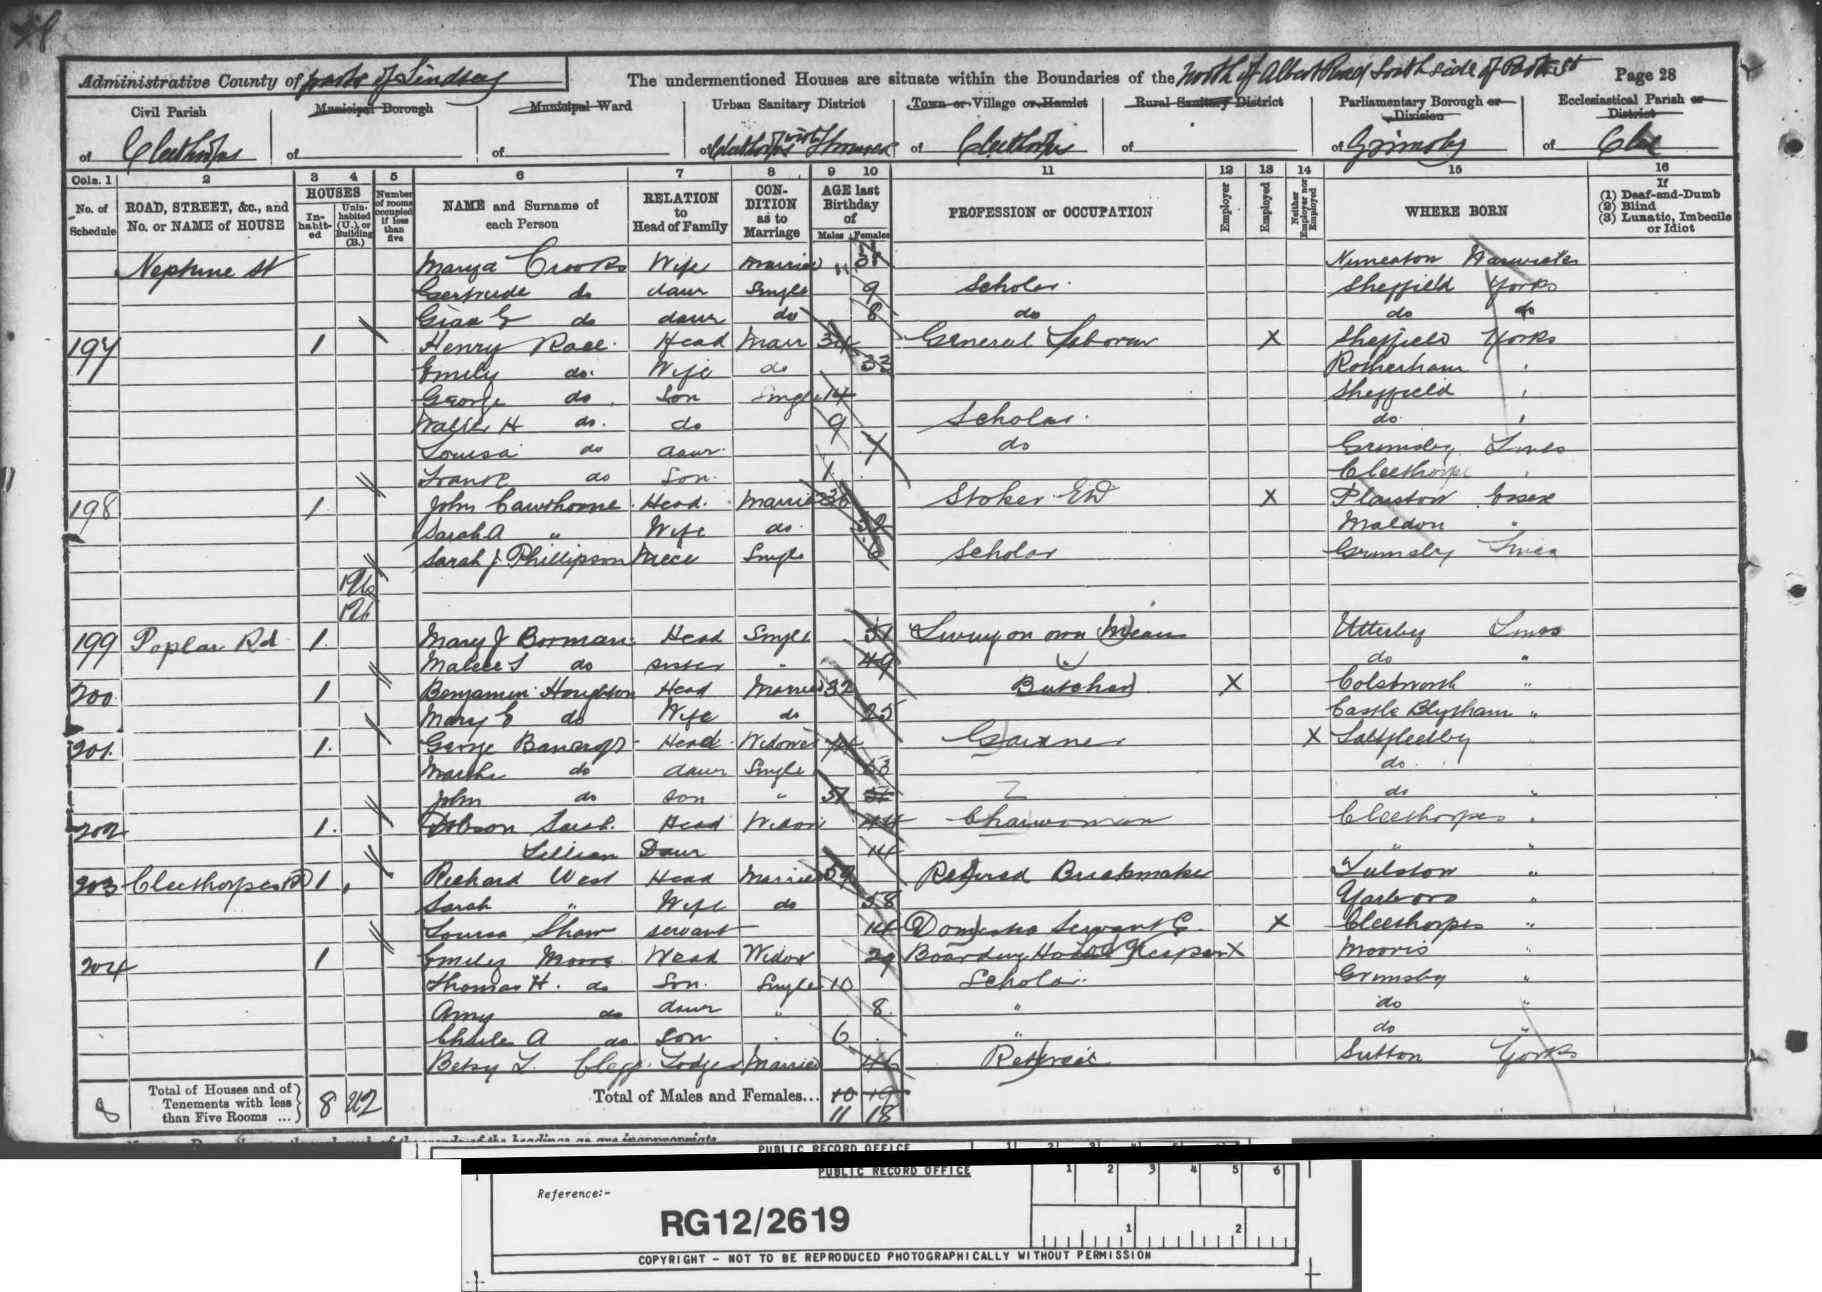 Administrative County of parts of Lindsey The undermentioned Houses are situate within the Boundaries of the North of Albert Road South side of St Page 28
Civil Parish Municipal Borough Municipal Ward Urban Sanitary District Town or Village or Hamlet Rural Sanitary District Parliamentary Borough or Division Ecclesiastical Parish or District
of Cleethorpes of of of Cleethorpes with Thrunscoe of Cleethorpes of of Grimsby of Clee
Cols. 1 2 3 4 5 6 7 8 9 10 11 12 13 14 15 16
No. of Schedule ROAD, STREET, &c., and No. or NAME of HOUSE HOUSES Inhabited Uninhabited (U.), or Building (B.) Number of rooms occupied if less than five NAME and Surname of each Person RELATION to Head of Family CONDITION as to Marriage AGE last Birthday of Males Females PROFESSION or OCCUPATION Employer Employed Neither Employer nor Employed WHERE BORN If (1) Deaf-and-Dumb (2) Blind (3) Lunatic, Imbecile or Idiot
Neptune St Crooks Wife Married Nuneaton Warwicks
Gertrude do daur Single 9 Scholar Sheffield Yorks
do daur do 8 do do do
197 1 Henry Race Head Marr 34 General Laborour X Sheffield Yorks
Emily do Wife do 33 Rotherham
George do Son Single 14 Sheffield
Walter H do do 9 Scholar do
Louisa do daur do Grimsby Lincs
Frank do Son 1 Cleethorpes
198 1 John Cawthorne Head Married 36 Stoker X Plaistow Essex
Sarah A " Wife do Maldon "
Sarah J Phillipson Niece Single 6 Scholar Grimsby Lincs
199 Poplar Rd 1 Mary J Borman Head Single 51 Living on own Means Utterby Lincs
do sister " 49 " do "
200 1 Benjamin Houghton Head Married 32 Butcher X Colsterworth "
Mary E do Wife do 25 Castle Bytham "
201 1 George Bancroft Head Widower X Saltfleetby
do daur Single do
John do son " do "
202 1 Dobson Sarah Head Widow 44 Charwoman Cleethorpes
Lillian Daur 14 " "
203 Cleethorpes Rd 1 Richard West Head Married 59 Retired Brickmaker Fulstow "
Sarah " Wife do 58 Yarboro "
Louisa Shaw servant 14 Domestic Servant X Cleethorpes "
204 1 Emily Head Widow 29 Boarding House Keeper X "
Thomas H do Son Single 10 Scholar Grimsby "
Amy do daur " 8 " do "
Charles A do son 6 " do "
Betsy L Clegg Lodger Married 46 Sutton Yorks
8 Total of Houses and of Tenements with less than Five Rooms ... 8 U2 Total of Males and Females... 10 19
11 18
PUBLIC RECORD OFFICE
PUBLIC RECORD OFFICE 1 2 3 4 5 6
Reference:-
RG12/2619 1 2
COPYRIGHT - NOT TO BE REPRODUCED PHOTOGRAPHICALLY WITHOUT PERMISSION